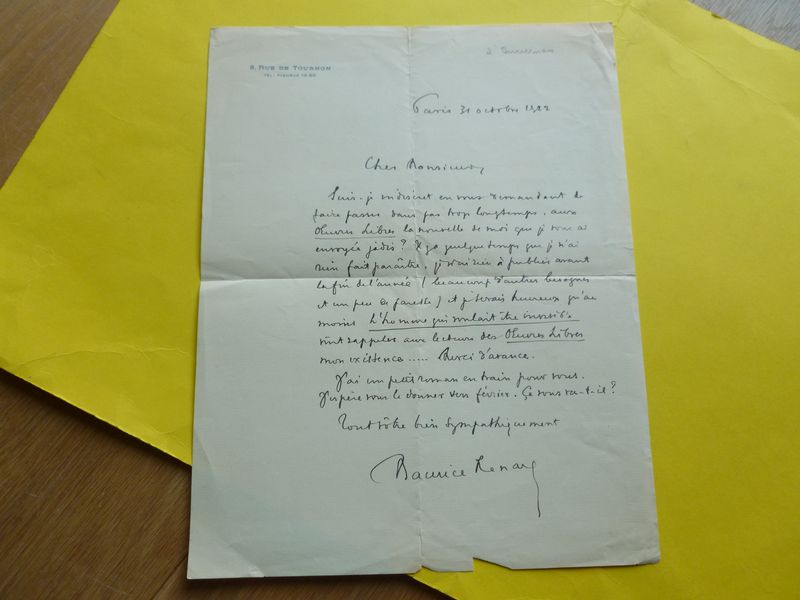 8, RUE DE TOURNON
TÉL: FLEURUS
à
Paris 31 octobre 1922
Cher Monsieur,
Suis-je indiscret en vous demandant de
faire passer dans pas trop longtemps, aux
Œuvres Libres la nouvelle de moi que je vous ai
envoyée jadis? Il y a quelque temps que je n'ai
rien fait paraître, je n'ai rien à publier avant
la fin de l'année (beaucoup d'autres besognes
et un peu de paresse) et je serais heureux qu'au
moins L'homme qui voulait être invisible
vînt rappeler aux lecteurs des Œuvres Libres
mon existence..... Merci d'avance.
J'ai un petit roman en train pour vous.
J'espère vous le donner vers février. Ça vous va-t-il?
Tout vôtre bien sympathiquement
Maurice Renard